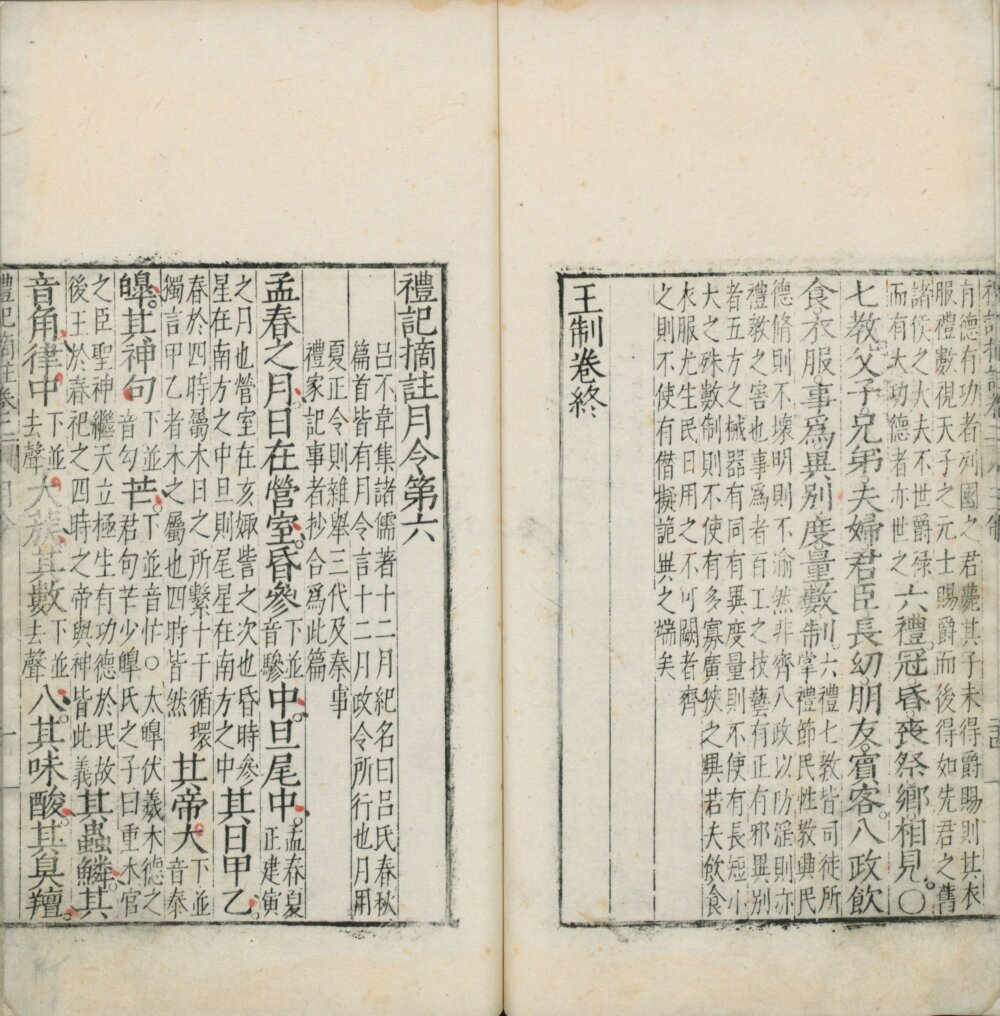 有德有功者列國之君薨其子未得爵賜則其衣
服禮數視天子之元士賜爵而後得如先君之舊
諸侯之大夫不世爵祿
而有大功德者亦世之
六禮冠昏喪祭鄉相見○
七教父子兄弟夫婦君臣長幼朋友賓客八政飲
食衣服事爲異別度量數制
六禮七教皆司徒所
掌禮節民性教興民
德脩則不壞明則不渝然非齊八政以防淫則亦
禮教之害也事爲者百工之技藝有正有邪異別
者五方之械器有同有異度量則不使有長短小
大之殊數制則不使有多寡廣狹之興若夫飲食
衣服尤生民日用之不可闕者齊
之則不使有僭擬詭異之端矣
王制卷終
禮記摘註月令第六
呂不韋集諸儒著十二月紀名曰呂氏春秋
篇首皆有月令言十二月政令所行也月用
夏正令則雜舉三代及秦事
禮家記事者抄合爲此篇
孟春之月日在營室昏參
下並
音驂
中旦尾中
孟春夏
正建寅
之月也營室在亥娵訾之次也昏時參
星在南方之中旦則尾星在南方之中
其日甲乙
春於四時屬木日之所繫十干循環
獨言甲乙者木之屬也四時皆然
其帝大
下並
音泰
皥其神句
下並
音勾
芒
下並音忙○太皥伏羲木德之
君句芒少皥氏之子曰重木官
之臣聖神繼天立極生有功德於民故
後王於春祀之四時之帝與神皆此義
其蟲鱗其
音角律中
下並
去聲
大蔟其數
下並
去聲
八其味酸其臭羶